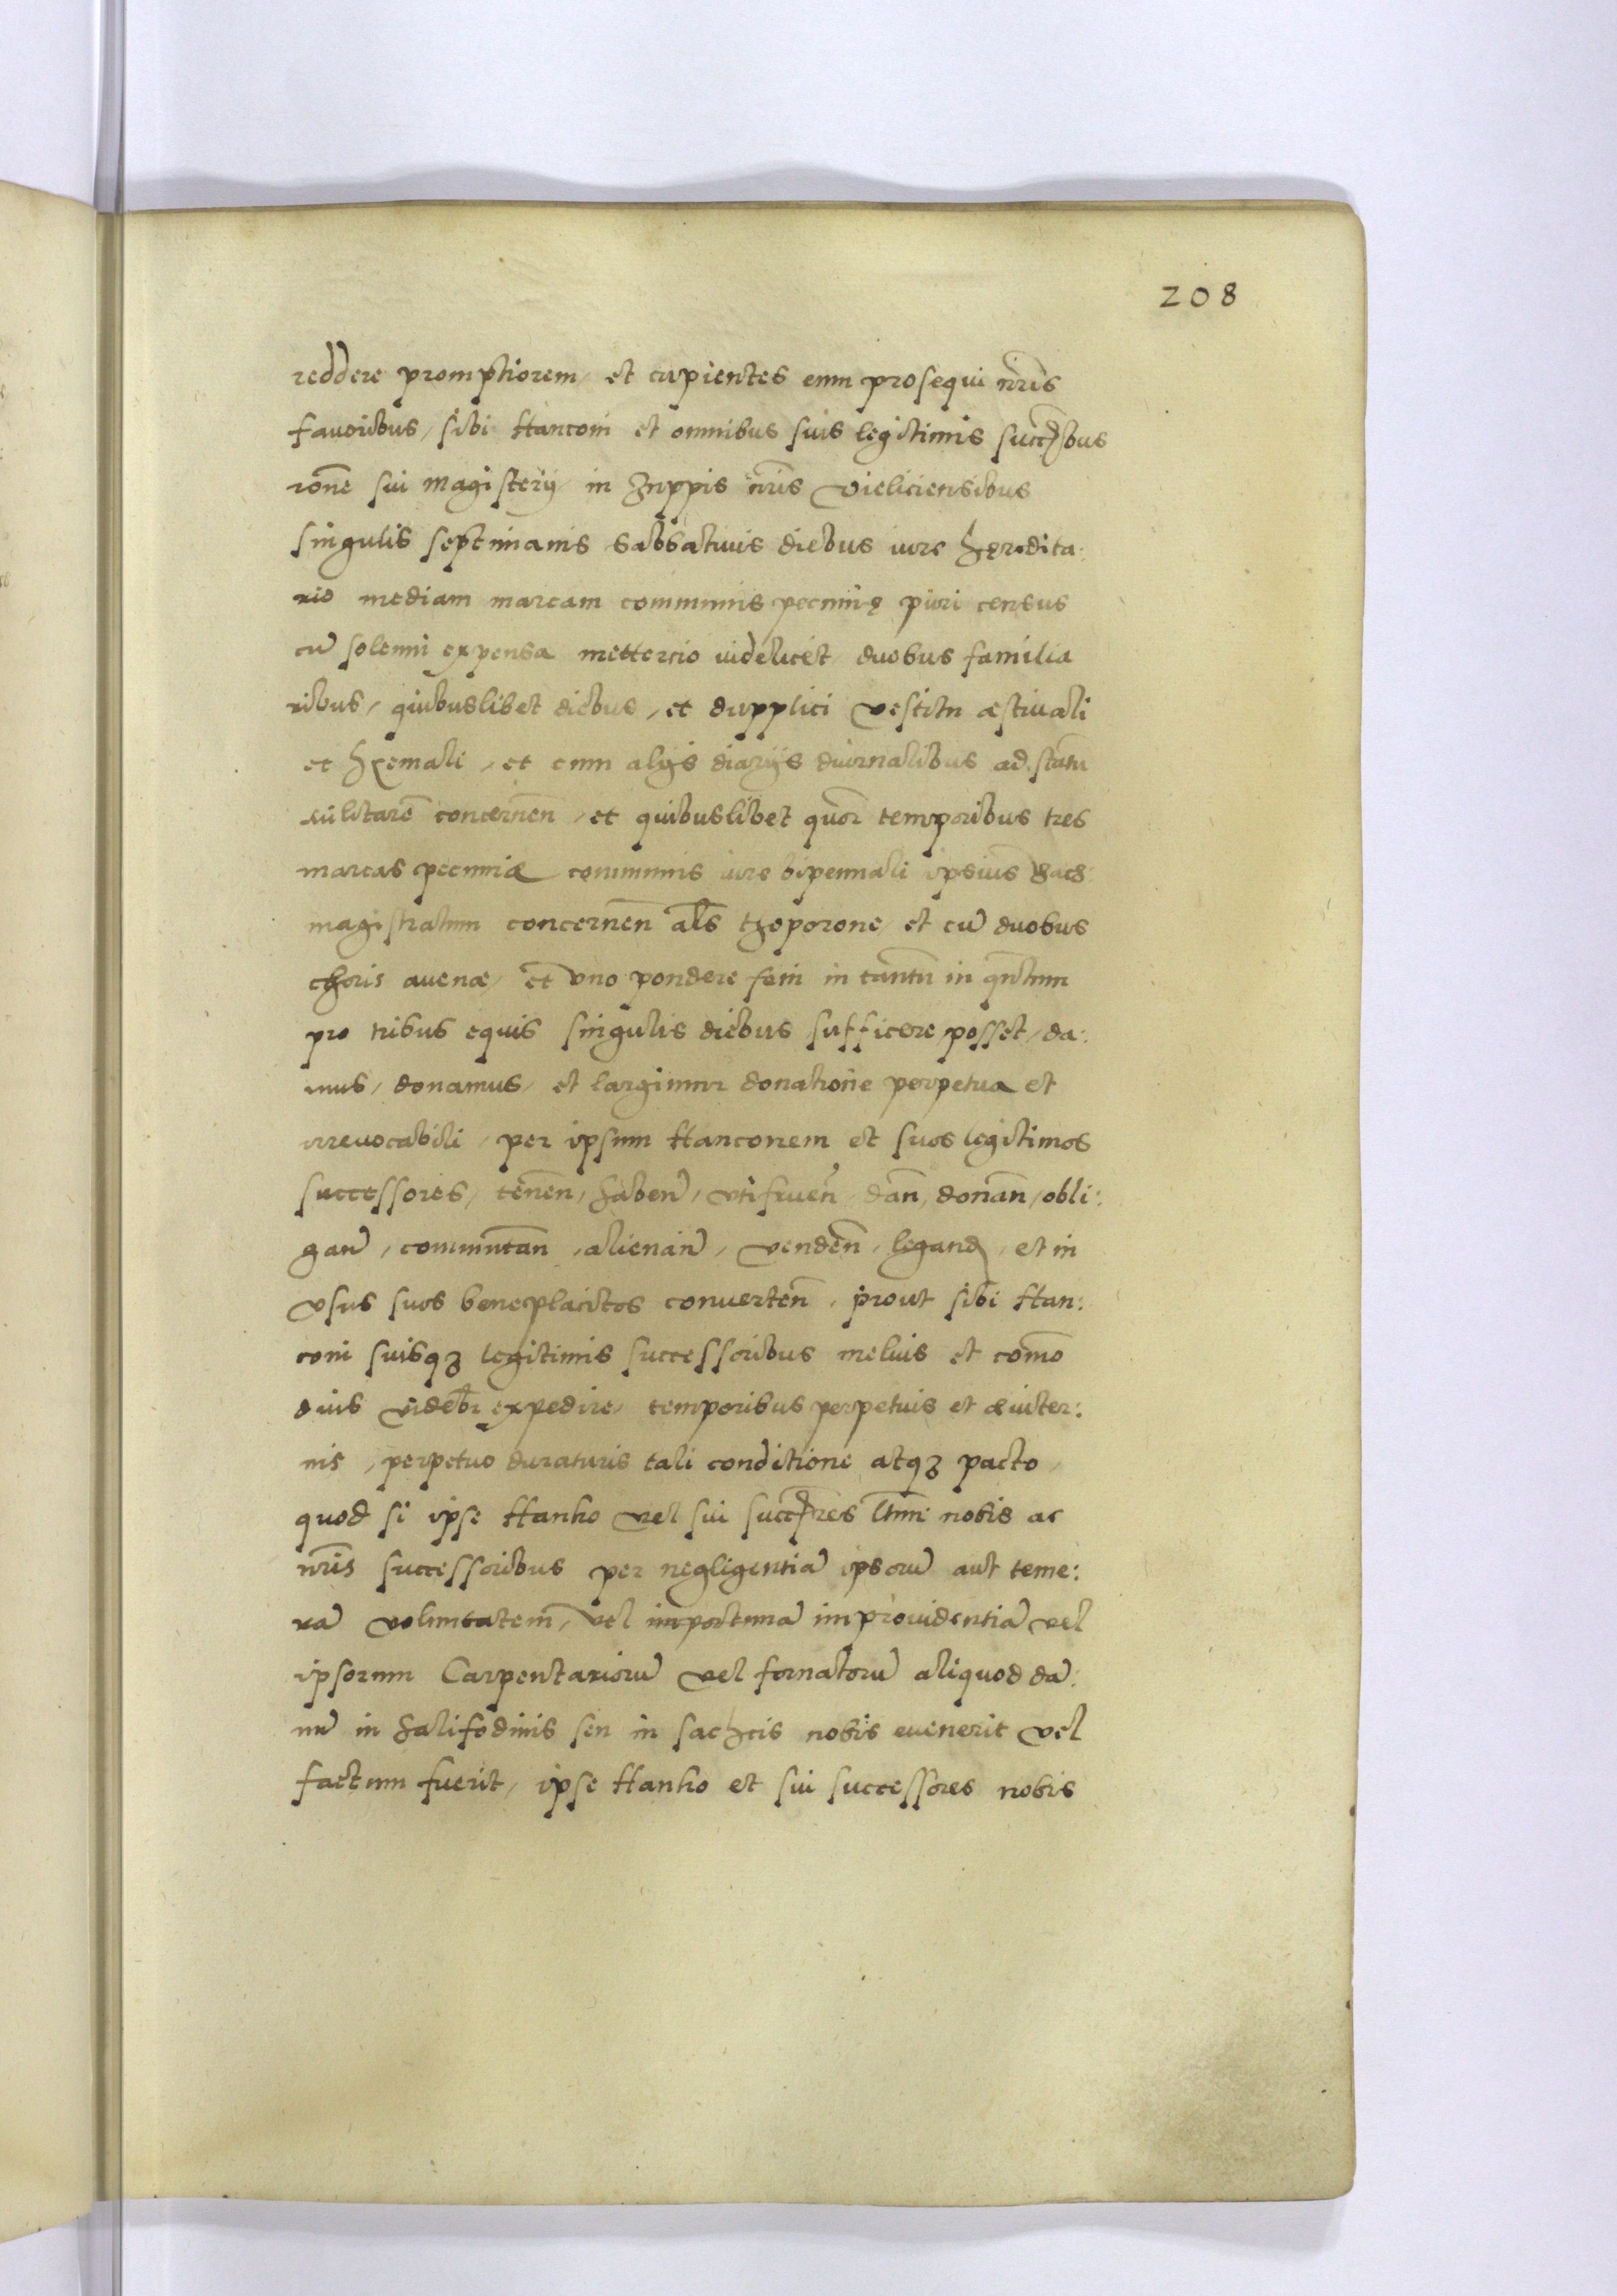 208
reddere promptiorem, et cupientes eum prosequi nr̃is
fauoribus, sibi Hanconi et omnibus suis legitimis succ̃ibus
rõne sui magisterij in Zuppis nr̃is Vieliciensibus
singulis septimanis sabbatiuis diebus iure hęredita:
rio mediam marcam communis pecunię puri census
cū solenni expensa mettercio videlicet duobus familia
ribus, quibuslibet diebus, et dupplici vestitu æstiuali
et hyemali, et cum alijs diarijs diurnalibus ad statū
militarē concernen̄, et quibuslibet quōr temporibus tres
marcas pecuniæ communis iure bipennali ipsius
magistratum concernen̄ al̄s tzoporone, et cū duobus
choris auenæ, et vno pondere feni in tantū in qn̄tum
pro tribus equis singulis diebus sufficere posset, da:
mus, donamus, et largimur donatione perpetua et
irreuocabili, per ipsum Hanconem et suos legitimos
successores, tenen̄, haben̄, vtifruen̄, dan̄, donan̄, obli:
gan̄, commutan̄, alienan̄, venden̄, legand, et in
vsus suos beneplacitos conuerten̄, prout sibi Han:
coni suisqꝫ legitimis successoribus melius et com̄o
dius videbr̄ expedire, temporibus perpetuis et æuiter:
nis, perpetuo duraturis tali conditione atqꝫ pacto,
quod si ipse Hanko vel sui succr̄es ltimi nobis ac
nr̃is successoribus per negligentiā ipsorū aut teme:
rā voluntatem, vel importunā improuidentiā vel
ipsorum Carpentariorū vel fornatorū aliquod dā:
nū in salifodinis seu in sachtis nobis euenerit vel
factum fuerit, ipse Hanko et sui successores nobis